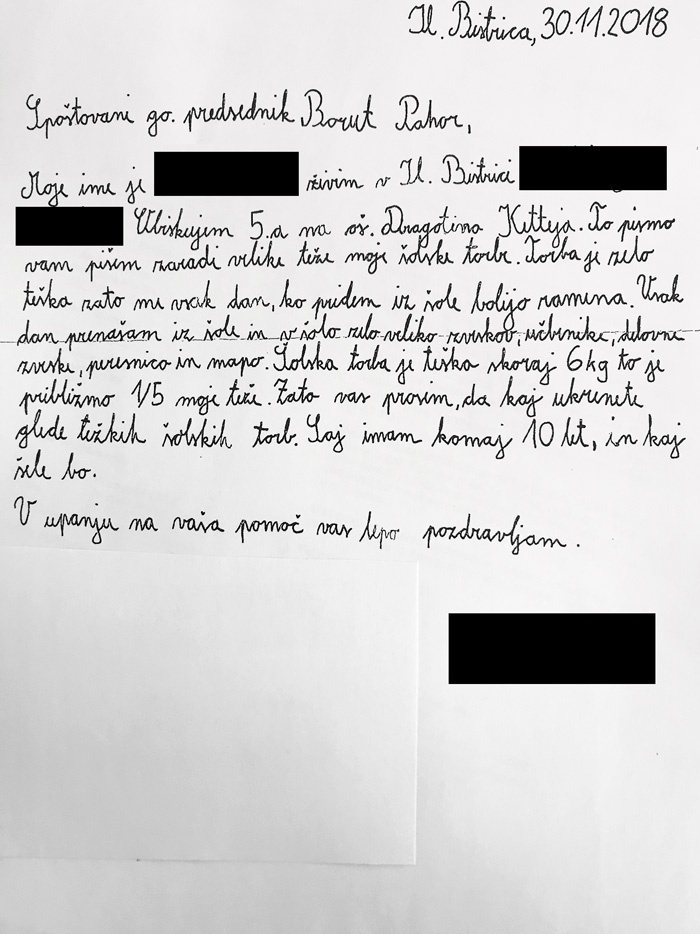 Il. Bistrica, 30.11.2018
Spoštovani go. predsednik Borut Pahor,
Moje ime je živim v Il. Bistrici
Obiskujem 5.a na oš. Dragotina Ketteja. To pismo
vam pišem zaradi velike teže moje šolske torbe. Torba je zelo
teška zato me vsak dan, ko pridem iz šole bolijo ramena. Vsak
dan prenašam iz šole in v šolo zelo veliko zvezkov, učbenike, delovne
zvezke, peresnico in mapo. Šolska torba je teška skoraj 6kg to je
približno 1/5 moje teže. Zato vas prosim, da kaj ukrenete
glede težkih šolskih torb. Saj imam komaj 10 let, in kaj
šele bo.
V upanju na vaša pomoč vas lepo pozdravljam.